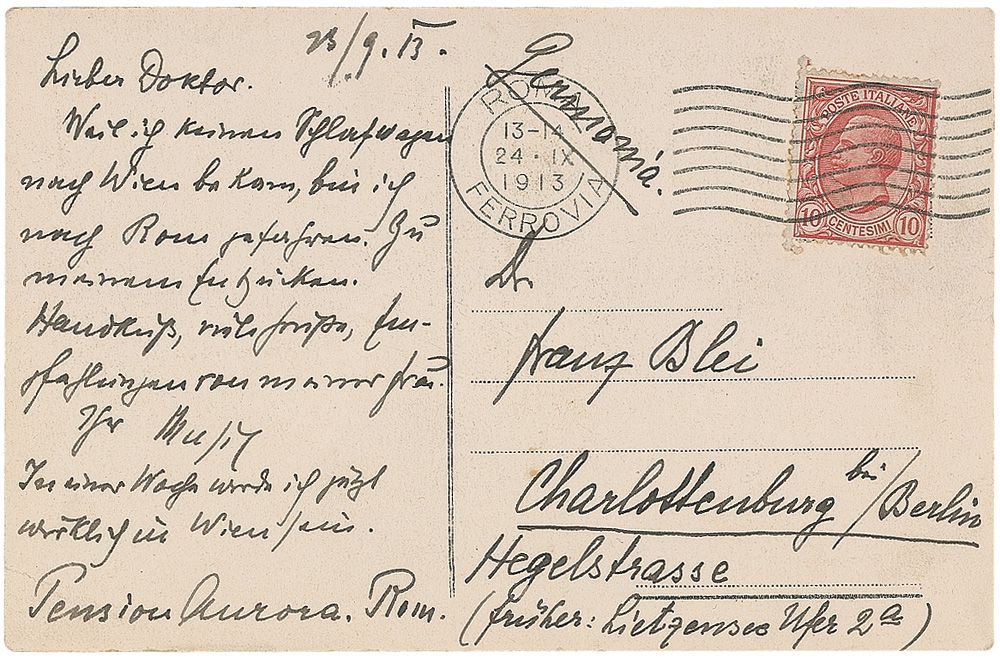 23/9. 13.
Lieber Doktor.
Weil ich keinen Schlafwagen
nach Wien bekam, bin ich
nach Rom gefahren. Zu
meinem Entzücken.
Handkuß, viele Grüße, Em-
pfehlungen von meiner Frau.
Ihr Musil
In einer Woche werde ich jetzt
wirklich in Wien sein.
Pension Aurora. Rom.
Germania.
ROMA
13-14
24·IX
1913
FERROVIA
POSTE ITALIANE
10 CENTESIMI 10
Dr.
Franz Blei
Charlottenburg bei/Berlin
Hegelstrasse
(früher: Lietzensee Ufer 2a)